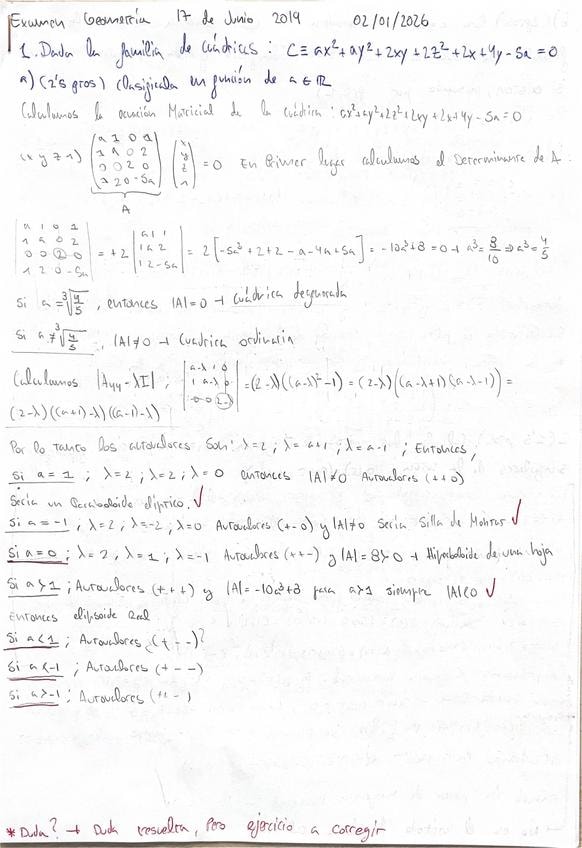 Examen Geometría 17 de Junio 2019 02/01/2026
1. Dada la familia de cuádricas : C ≡ ax²+ay²+2xy+2z²+2x+4y-5a=0
a) (2'5 ptos) clasificarla en función de a ∈ ℝ
Calculamos la ecuación Matricial de la cuádrica : ax²+ay²+2z²+2xy+2x+4y-5a=0
(x y z 1) (a 1 0 1 / 1 a 0 2 / 0 0 2 0 / 1 2 0 -5a) (x / y / z / 1) = 0 En Primer lugar calculamos el Determinante de A.
A
|a 1 0 1 / 1 a 0 2 / 0 0 2 0 / 1 2 0 -5a| = +2 |a 1 1 / 1 a 2 / 1 2 -5a| = 2 [-5a³+2+2-a-4a+5a] = -10a³+8 = 0 → a³ = 8/10 ⇒ a³ = 4/5
Si a = ³√4/5 , entonces |A|=0 → Cuádrica degenerada
Si a ≠ ³√4/5 , |A|≠0 → Cuadrica ordinaria
Calculamos |A44-λI| ; |a-λ 1 0 / 1 a-λ 0 / 0 0 2-λ| = (2-λ)((a-λ)²-1) = (2-λ)(a-λ+1)(a-λ-1)) =
(2-λ)((a+1)-λ)((a-1)-λ)
Por lo tanto los autovalores son: λ=2 ; λ=a+1 ; λ=a-1 ; Entonces,
Si a=1 ; λ=2 ; λ=2 ; λ=0 entonces |A|≠0 Autovalores (++0)
Sería un Paraboloide elíptico. ✓
Si a=-1, λ=2 ; λ=-2 ; λ=0 Autovalores (+-0) y |A|≠0 Sería Silla de Montar ✓
Si a=0 ; λ=2, λ=1 ; λ=-1 Autovalores (++-) y |A|=8>0 → Hiperboloide de una hoja
Si a>1 ; Autovalores (+++) y |A|=-10a³+8 para a>1 siempre |A|<0 ✓
Entonces elipsoide Real
Si a<1 ; Autovalores (+ -)?
Si a<-1 ; Autovalores (+--)
Si a>-1 ; Autovalores (++-)
* Duda? → Duda resuelta, pero ejercicio a corregir